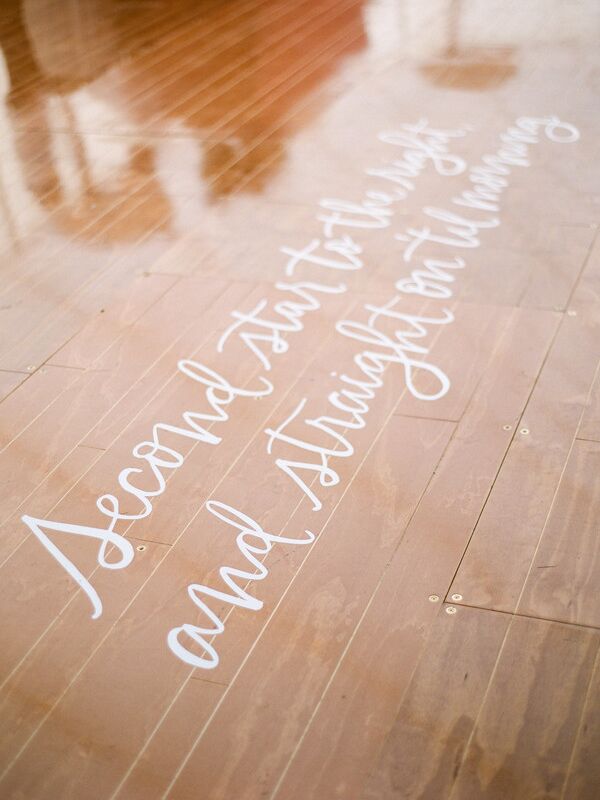 Second star to the right,
and straight on 'til morning